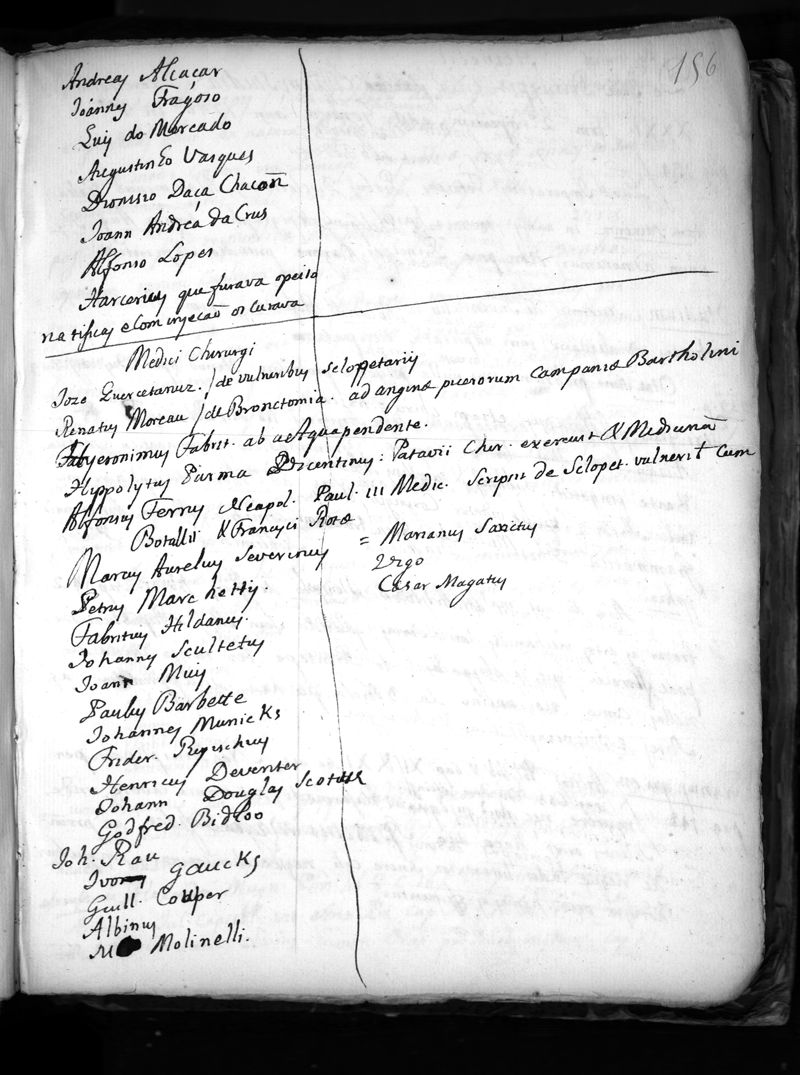 156
Andreas Alcacar
Joannes Fragoso
Luis do Mercado
Augustinho Vasques
Dionisio Daca Chacon
Joann Andrea da Crus
Alfonso Lopes
que furava o peito
nas tisicas e com injecaõ os curava
Medici Chirurgi
Joze Quercetanuz. / de vulneribus selopetariis
Renatus Moreau / de Bronctomia. ad anginæ puerorum Campaniæ Bartholini
Hyeronimus Fabrit. ab acAquapendente.
Hippolytus Parma Placentinus: Patavii Chir. exercuit & Medicinã
Alfonsus Ferrus Neapol. Paul. III Medic. scripsit de Sclopet. vulnerib cum
Botallii & Francisci Rotæ
Marcus Aurelius Severinus = Marianus Sanctus
Vigo
Cæsar Magatus
Petrus Marchettis.
Fabritius Hildanus.
Johannes Scultetus
Joann Muis
Paulus Barbette
Johannes Municks
Frider. Ruischius
Henricus Deventer
Johann Douglas Scotus
Godfred. Bidloo
Joh. Rau
gaucks
Guill. Couper
Albinus
Molinelli.